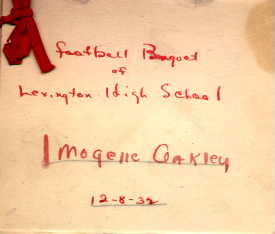 Football Banquet
of
Lexington High School
Imogene Oakley
12-8-32